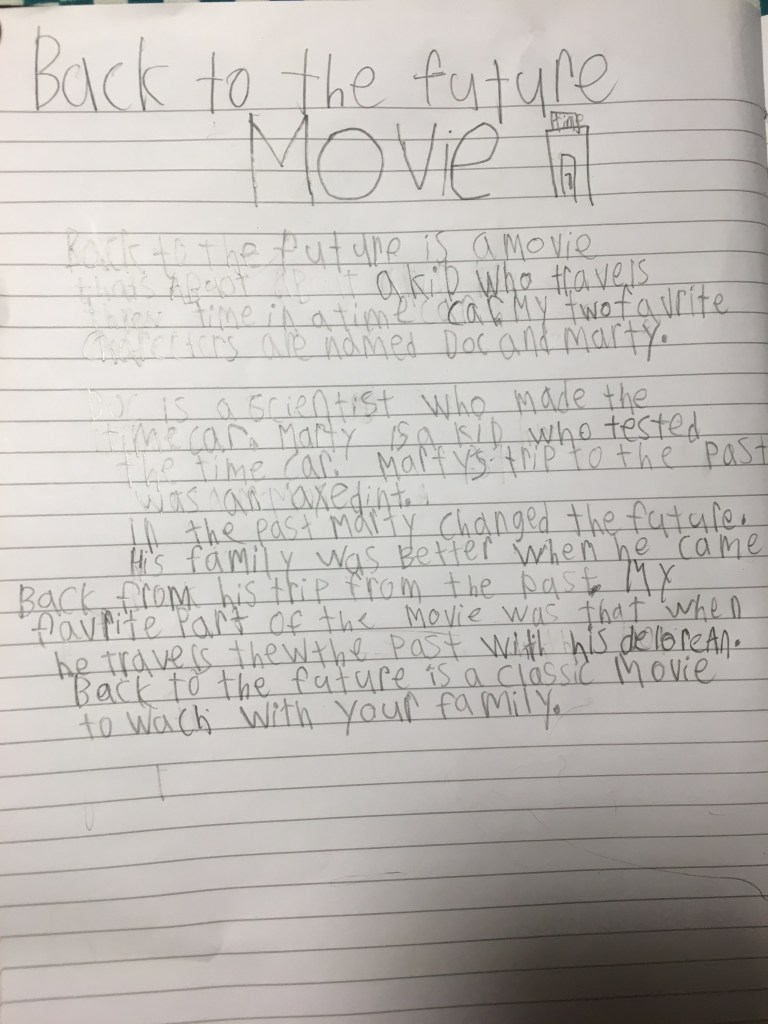 Back to the future
Movie
time
Back to the future is a movie
that's about a kid who travels
time in a time car. My two favrite
are named Doc and Marty.
Doc is a scientist who made the
time car. Marty is a kid who tested
the time car. Martys trip to the past
was an axedint.
in the past Marty changed the future.
His family was Better when he came
Back from his trip from the past. My
favrite Part of the Movie was that when
he travels thew the past with his delorean.
Back to the future is a classic Movie
to wach with your family.